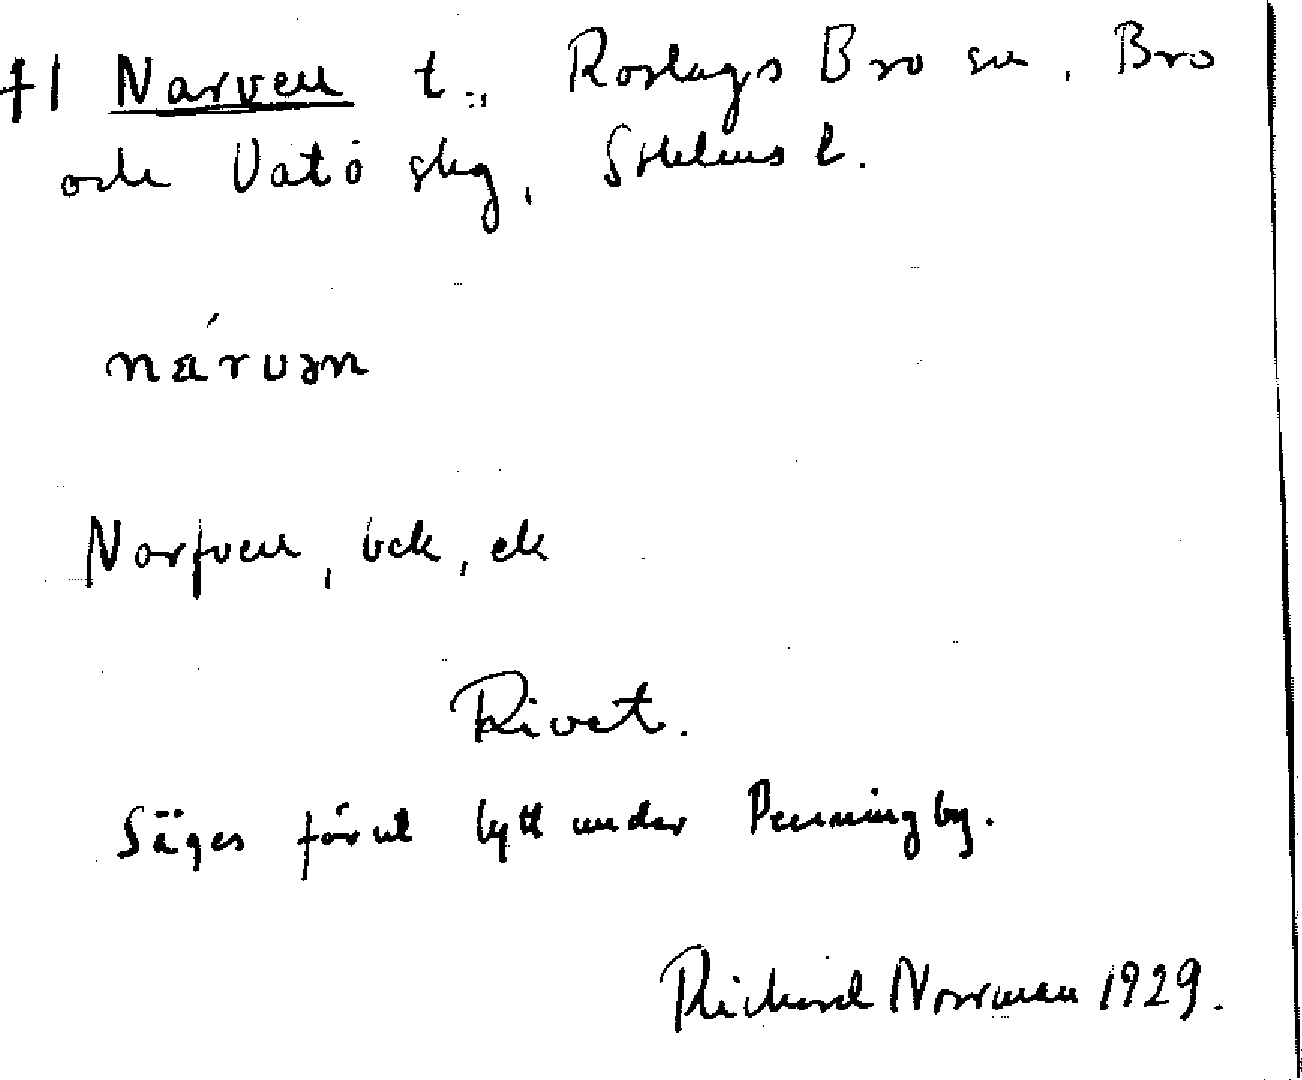 †1 Narven t., Roslags Bro sn, Bro
och Vätö skg, Sthlms l.
nárvən
Narfven, bek, ek
Rivet.
Säges förut lytt under Penningby.
Richard Norrman 1929.